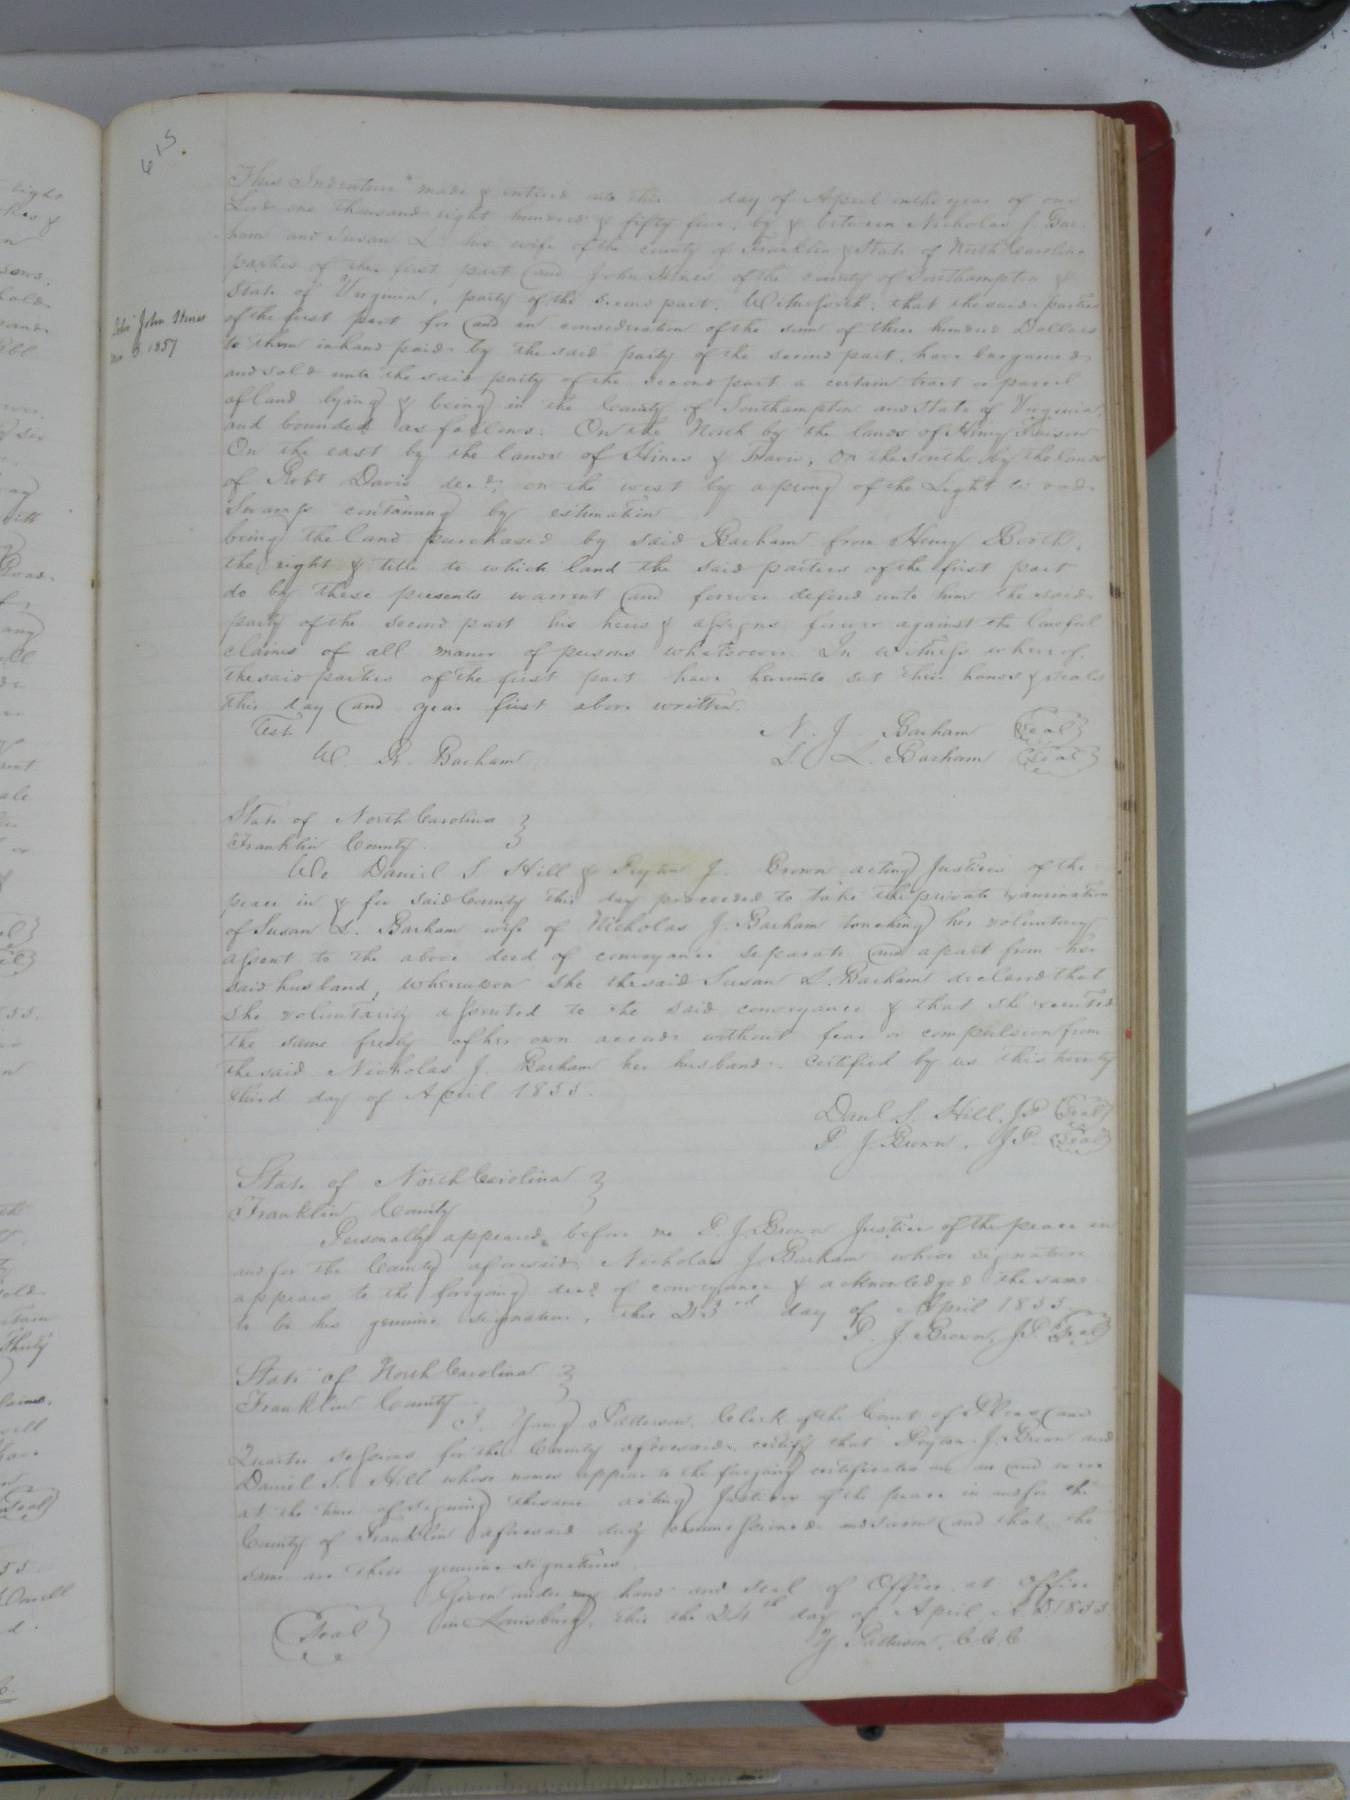 615.
This Indenture made & entered into this day of April in the year of our
Lord one thousand eight hundred & fifty five, by & between Nicholas J. Bar-
ham and Susan L. his wife of the county of Franklin & State of North Carolina
parties of the first part and John Hines of the county of Southampton &
State of Virginia, party of the second part. Witnesseth: that the said parties
of the first part for and in consideration of the sum of three hundred Dollars
to them in hand paid by the said party of the second part, have bargained
and sold unto the said party of the second part a certain tract or parcel
of land lying & being in the County of Southampton and State of Virginia,
and bounded as follows. On the North by the lands of Henry
On the east by the lands of Hines & , on the South by the lands
of Robt Davis decd, on the west by a prong of the Light wood
Swamp containing by estimation
being the land purchased by said Barham from Henry Booth.
the right & title to which land the said parties of the first part
do by these presents warrent and forever defend unto him the said
party of the second part his heirs & assigns forever against the lawful
claims of all maner of persons whatsoever. In witness whereof.
the said parties of the first part have hereunto set their hands & seals
this day and year first above written.
Test N. J. Barham (Seal)
W. R. Barham S. L. Barham (Seal)
John Hines
1857
State of North Carolina }
Franklin County. }
We Daniel S Hill & Peyton J. Brown acting Justices of the
peace in & for said County this day proceeded to take the private examination
of Susan L. Barham wife of Nicholas J. Barham touching her voluntary
assent to the above deed of conveyance separate and apart from her
said husband, whereupon she the said Susan L. Barham declared that
she voluntarily assented to the said conveyance & that she executed
the same freely of her own accord without fear or compulsion from
the said Nicholas J. Barham her husband. Certified by us this twenty
third day of April 1855.
Danl S. Hill, JP (Seal)
P. J. Brown, JP. (Seal)
State of North Carolina }
Franklin County }
Personally appeared before me P. J. Brown Justice of the peace in
and for the County aforesaid, Nicholas J. Barham whose signature
appears to the forgoing deed of conveyance & acknowledged the same
to be his genuine signature, this 23rd day of April 1855
P. J. Brown, JP. (Seal)
State of North Carolina }
Franklin County }
I. Young Patterson, Clerk of the Court of Pleas and
Quarter sessions for the County aforesaid, certify that Peyton J. Brown and
Daniel S. Hill whose names appear to the forgoing certificates are and were
at the time of signing the same acting Justices of the peace in and for the
County of Franklin aforesaid duly commissioned and sworn and that the
same are their genuine signatures.
Given under my hand and seal of Office at office
(Seal) in Louisburg, this the 24th day of April A.D 1855
Y Patterson, C.C.C